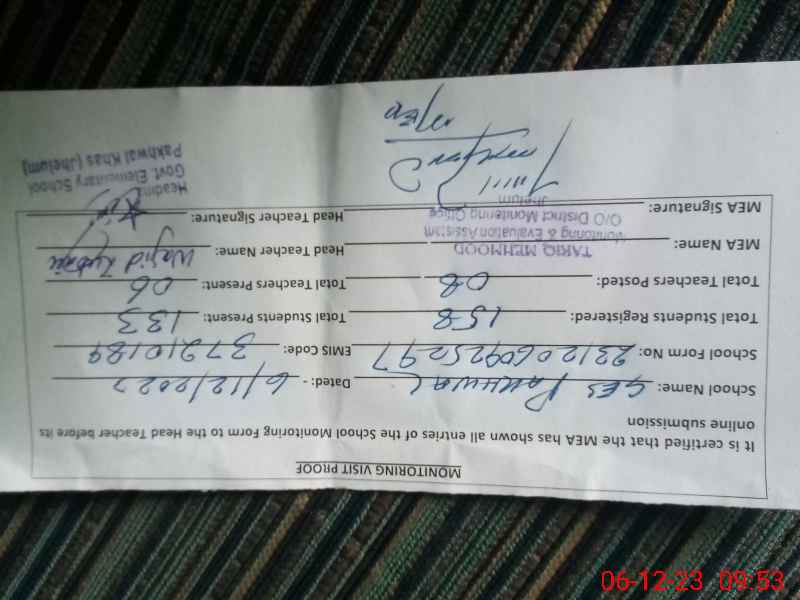 MONITORING VISIT PROOF
It is certified that the MEA has shown all entries of the School Monitoring Form to the Head Teacher before its
online submission
School Name: GES Pakhwal Dated: - 6/12/2023
School Form No: EMIS Code: 37210189
Total Students Registered: 158 Total Students Present: 133
Total Teachers Posted: 08 Total Teachers Present: 06
MEA Name: TARIQ MEHMOOD Head Teacher Name: Wajid
Monitoring & Evaluation Assistant
O/O District Monitering Office
Jhelum
MEA Signature: Head Teacher Signature:
Heading
Govt. Elementary School
Pakhwal Khas (Jhelum)
06-12-23 09:53